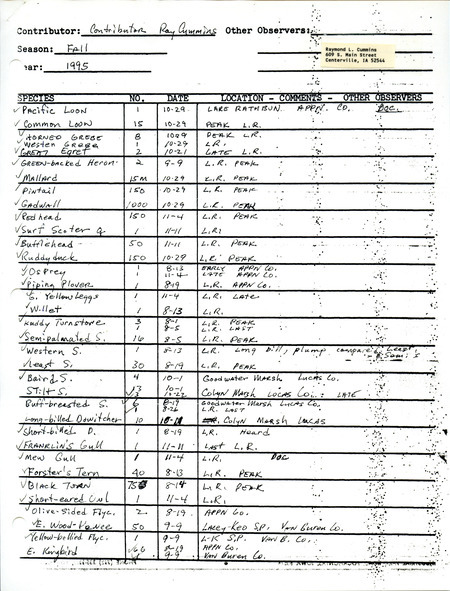 Contributor: Contributor Ray Cummins Other Observers:
Raymond L. Cummins
609 S. Main Street
Centerville, IA 52544
Season: Fall
ear: 1995
SPECIES NO. DATE LOCATION - COMMENTS - OTHER OBSERVERS
Pacific Loon 1 10-29 LAKE RATHBUN. APPN. CO. DOC.
Common Loon 15 10-29 PEAK L.R.
HORNED GREBE 8 10-29 PEAK L.R.
Western Grebe 1 10-29 L.R.
GREAT Egret 2 10-21 LATE L.R.
GREEN-backed Heron 2 9-9 L.R. PEAK
Mallard 15M 10-29 L.R. PEAK
Pintail 150 10-29 L.R. PEAK
Gadwall 1000 10-29 L.R. PEAK
Redhead 150 11-4 L.R. PEAK
Surf Scoter 1 11-11 L.R.
Bufflehead 50 11-11 L.R. PEAK
Ruddyduck 150 10-29 L.R. PEAK
Osprey 1 8-13 EARLY APPN Co.
1 11-4 LATE APPN Co.
Piping Plover 1 8-19 L.R. APPN Co.
G. Yellowlegs 1 11-4 L.R. Late
Willet 1 8-13 L.R.
Ruddy Turnstone 3 8-1 L.R. PEAK
1 8-5 L.R. LAST
Semi-palmated S. 16 8-5 L.R. PEAK
Western S. 1 8-13 L.R. Long bill, plump compare Least, Semi's
Least S. 30 8-19 L.R. PEAK
Baird S. 4 10-1 Goodwater Marsh Lucas Co.
Stilt S. 13 10-1
3 10-22 Colyn Marsh Lucas Co.: LATE
Buff-breasted S. 8-19 Goodwater Marsh Lucas Co.
8-26 L.R. LAST
Long-billed Dowitcher 10 Colyn Marsh LUCAS
Short-billed D. 1 8-19 L.R. Heard
FRANKLIN'S Gull 1 11-11 Last L.R.
Mew Gull 1 11-4 L.R. DOC
Forster's Tern 40 8-13 L.R. PEAK
BLACK TERN 75 8-14 L.R. PEAK
Short-eared Owl 1 11-4 L.R.
Olive-sided Flyc. 2 8-19 APPN Co.
E. Wood-Pewee 50 9-9 Lacey-Keo S.P. Van Buren Co.
Yellow-bellied Flyc. 1 9-9 L-K S.P. Van B. Co.
E. Kingbird 8-19 APPN Co.
9-9 Van Buren Co.